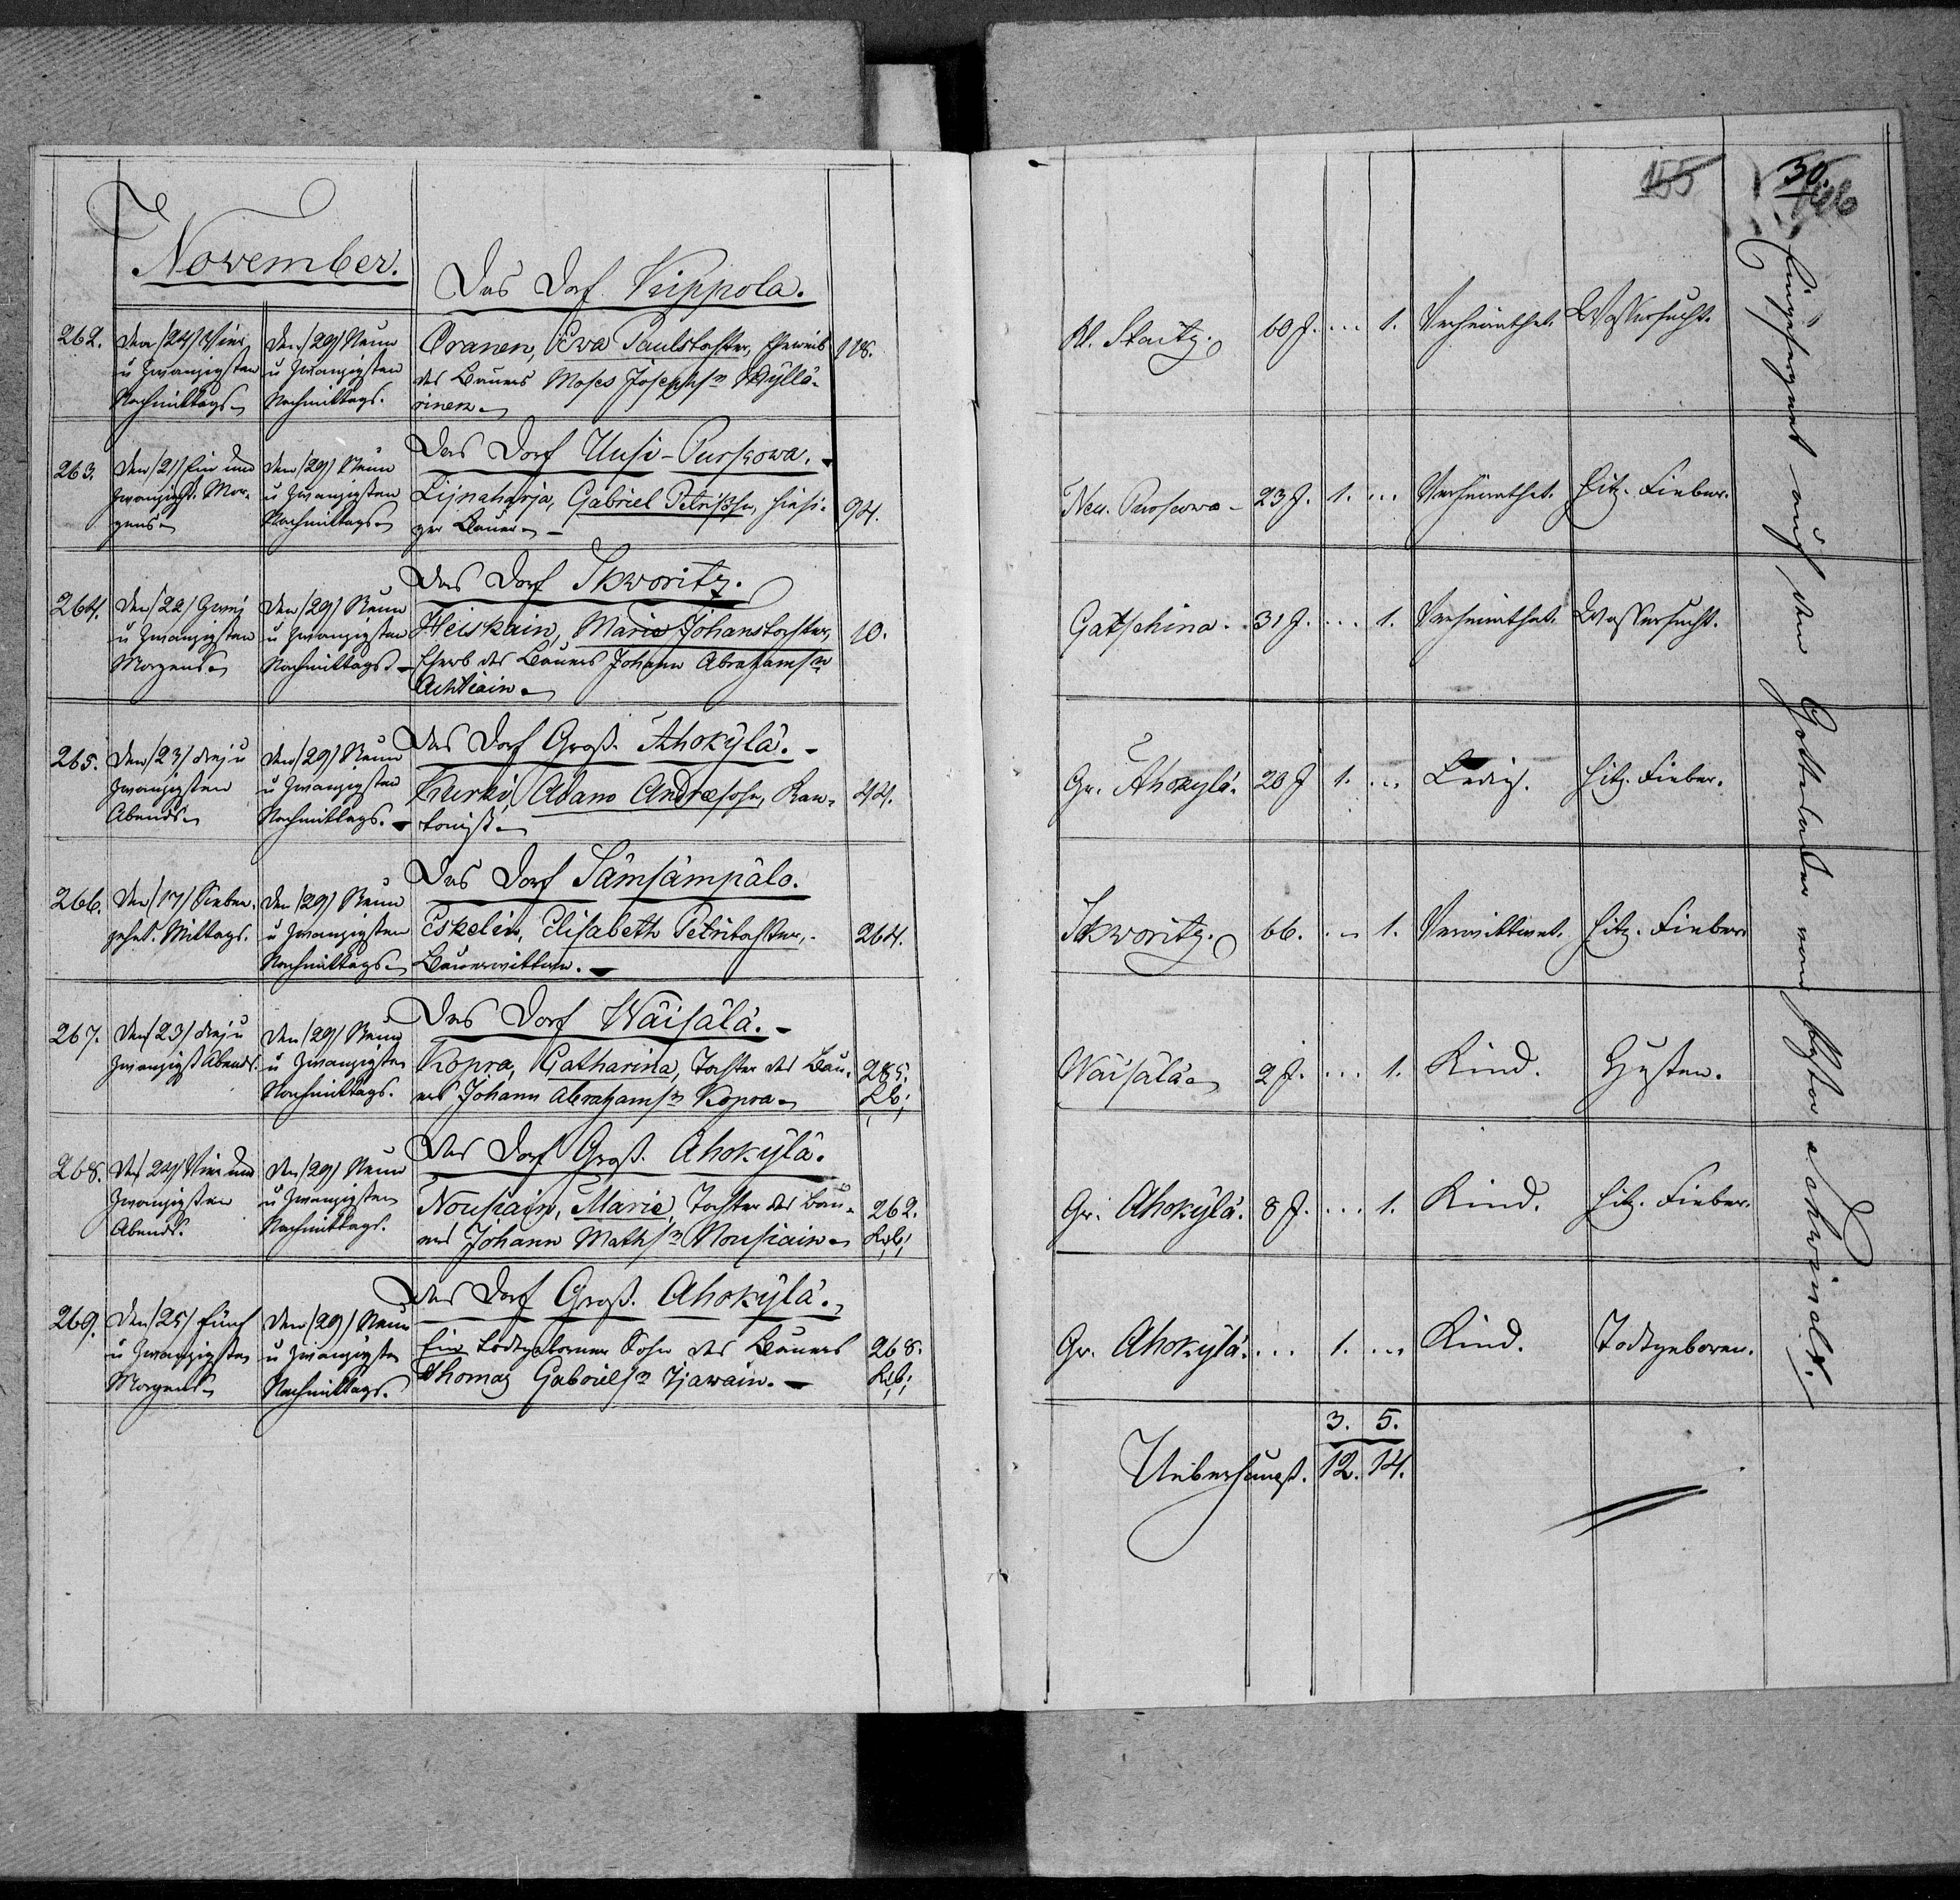 November.
Das Dorf Kuppola.
262. Den /24/ Vier
u Zwanzigsten
Nachmittags.
Den /29/ Neun
u Zwanzigsten
Nachmittags.
Oranen, Ewa Paulstochter, Eheweib
des Bauers Moses Josephsn Myllä-
rinen.
118.
Das Dorf Uusi-Purskowa.
263. Den /21/ Ein und
Zwanzigst. Mor-
gens.
Den /29/ Neun
u Zwanzigsten
Nachmittags.
Lijnaharja, Gabriel Petrisohn, hiesi-
ger Bauer.
94.
Das Dorf Skworitz.
264. Den /22/ Zwei
u Zwanzigsten
Morgens.
Den /29/ Neun
u Zwanzigsten
Nachmittags.
Heiskain, Maria Johanstochter,
Ehewb des Bauers Johann Abrahamsn
Achtiain.
10.
Das Dorf Groß. Ahokylä.
265. Den /23/ Drei u
Zwanzigsten
Abends.
Den /29/ Neun
u Zwanzigsten
Nachmittags.
Kurki, Adam Andreasohn, Kan-
tonist.
Das Dorf Sämsämpälo.
266. Den /17/ Sieben-
zehnt. Mittags.
Den /29/ Neun
u Zwanzigsten
Nachmittags.
Eskelin, Elisabeth Petritochter,
Bauerwittwe.
264.
Das Dorf Wäisälä.
267. Den /23/ Drei u
Zwanzigst Abends.
Den /29/ Neun
u Zwanzigsten
Nachmittags.
Kopra, Catharina, Tochter des Bau-
ers Johann Abrahamsn Kopra.
285.
Das Dorf Groß. Ahokylä.
268. Den 24/ Vier und
Zwanzigsten
Abends.
Den /29/ Neun
u Zwanzigsten
Nachmittags.
Nousiain, Maria, Tochter des Bau-
ers Johann Mathsn Nousiain.
262.
Das Dorf Groß. Ahokylä.
269. Den /25/ Fünf
u Zwanzigsten
Morgens.
Den /29/ Neun
u Zwanzigsten
Nachmittags.
Ein todtgeborner Sohn des Bauers
Thomas Gabrielsn Tjawain.
268.
155
30.
166
Kl. Staitz. 60 J. ... 1. Verheirathet. Wassersucht.
Neu. Purskowa 23 J. 1. ... Verheirathet. Hitz. Fieber.
Gatschina. 31 J. ... 1. Verheirathet. Wassersucht.
Gr. Ahokylä. 20 J 1. ... Ledig. Hitz. Fieber.
Skworitz. 66. ... 1. Verwittwet. Hitz. Fieber.
Wäisälä 2 J. ... 1. Kind. Husten.
Gr. Ahokylä. 8 J. ... 1. Kind. Hitz. Fieber.
Gr. Ahokylä. ... 1. ... Kind. Todtgeboren.
3. 5.
Ueberhaupt. 12. 14.
Eingesegnet auf dem Gottesacker vom Pastor Schwindt.